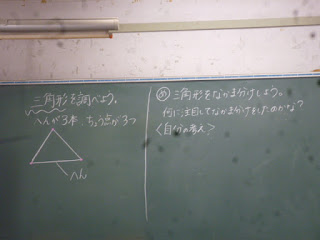 三角形を調べよう。
へんが3本、ちょう点が3つ
へん
め 三角形をなかま分けしよう。
何に注目してなかま分けをしたのかな？
〈自分の考え〉